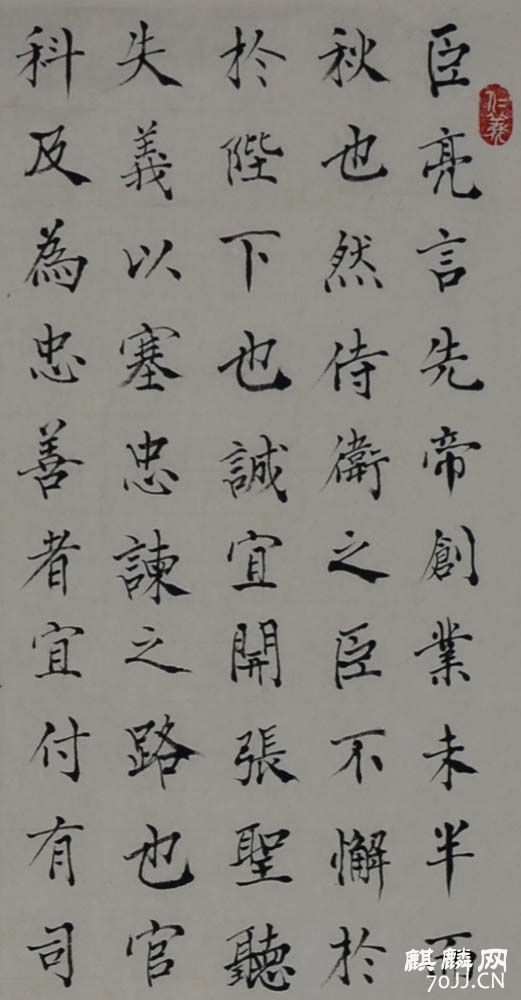 臣亮言先帝創業未半而
秋也然侍衛之臣不懈於
於陛下也誠宜開張聖聽
失義以塞忠諫之路也官
科及為忠善者宜付有司
仁義
麒麟网
70JJ.CN